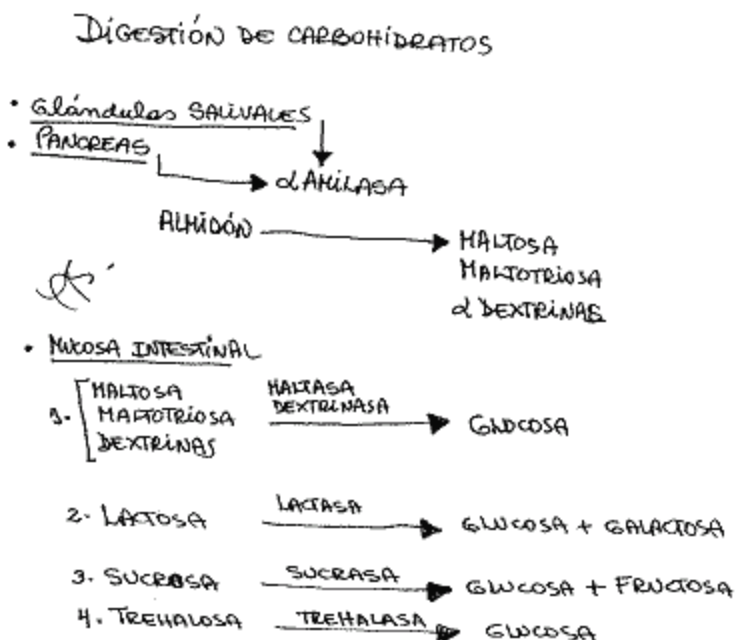 DIGESTIÓN DE CARBOHIDRATOS
• Glándulas SALIVALES
• PANCREAS
α AMILASA
ALMIDÓN → MALTOSA
MALTOTRIOSA
α DEXTRINAS
• MUCOSA INTESTINAL
1. MALTOSA MALTASA
MALTOTRIOSA DEXTRINASA → GLUCOSA
DEXTRINAS
2. LACTOSA LACTASA → GLUCOSA + GALACTOSA
3. SUCROSA SUCRASA → GLUCOSA + FRUCTOSA
4. TREHALOSA TREHALASA → GLUCOSA